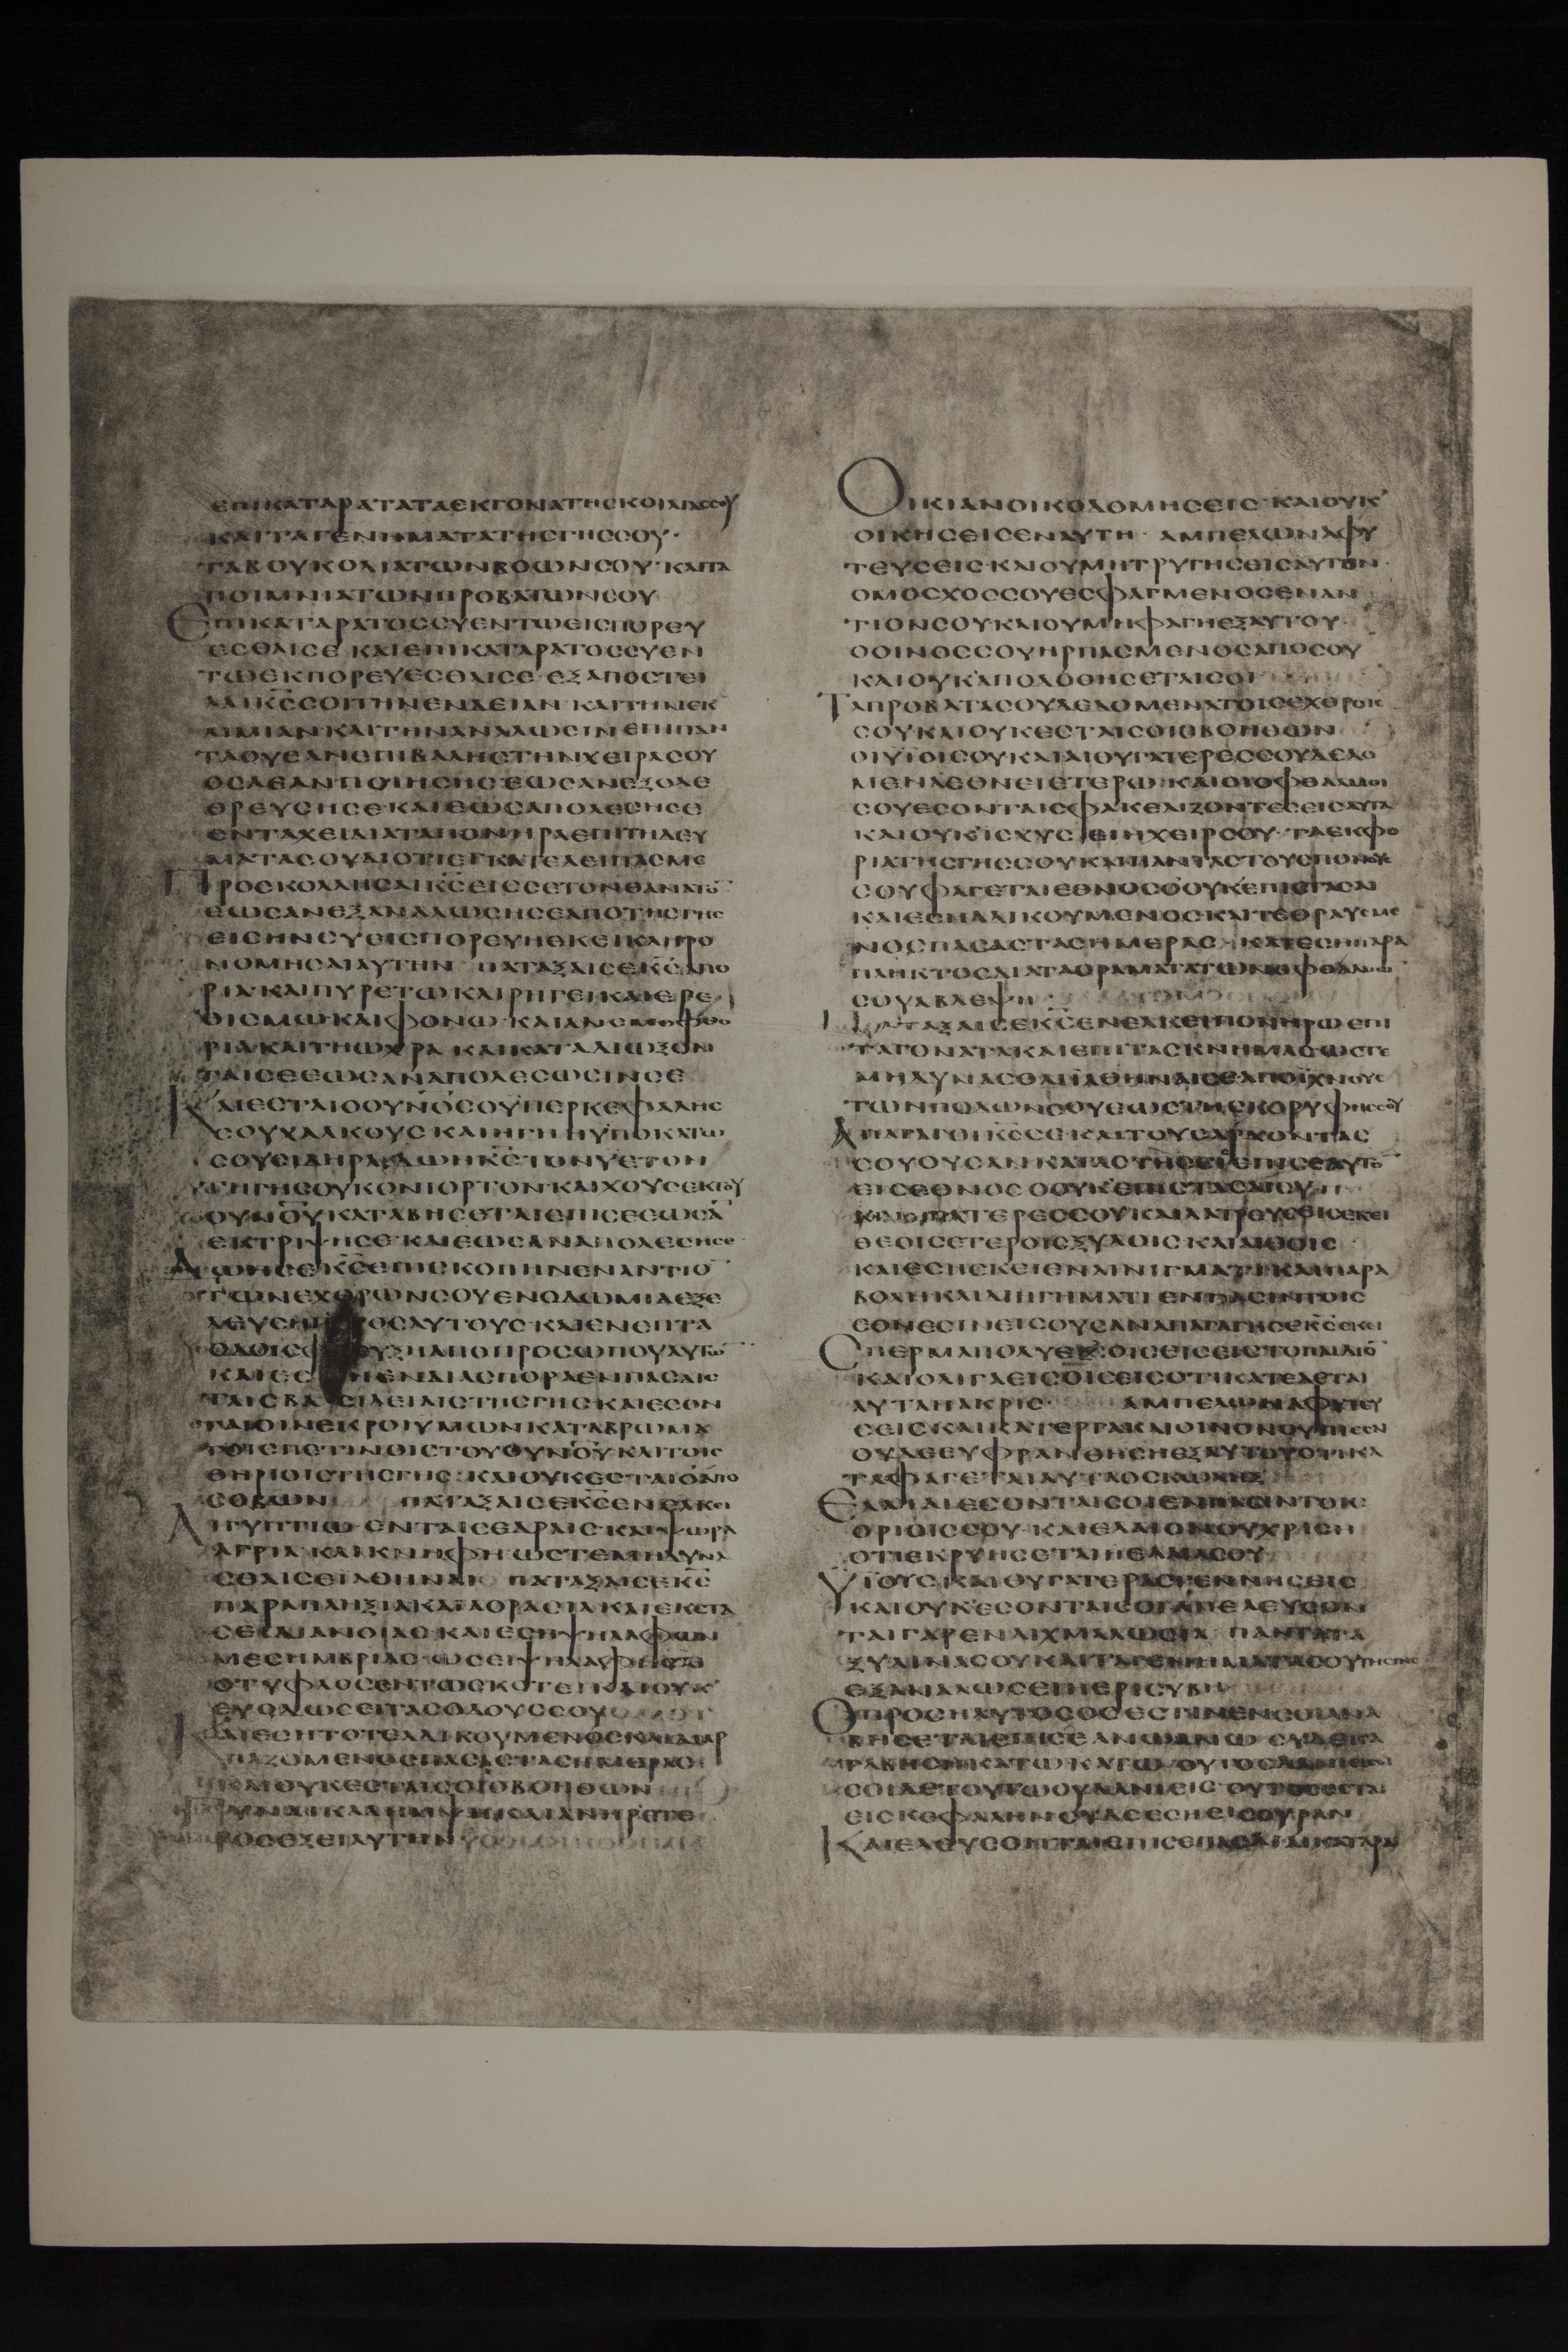 ΕΠΙΚΑΤΑΡΑΤΑΤΑΕΚΓΟΝΑΤΗΣΚΟΙΛΙΑΣΣΟΥ
ΚΑΙΤΑΓΕΝΗΜΑΤΑΤΗΣΓΗΣΣΟΥ·
ΤΑΒΟΥΚΟΛΙΑΤΩΝΒΟΩΝΣΟΥ·ΚΑΙΤΑ
ΠΟΙΜΝΙΑΤΩΝΠΡΟΒΑΤΩΝΣΟΥ
ΕΠΙΚΑΤΑΡΑΤΟΣΣΥΕΝΤΩΕΙΣΠΟΡΕΥ
ΕΣΘΑΙΣΕ ΚΑΙΕΠΙΚΑΤΑΡΑΤΟΣΣΥΕΝ
ΤΩΕΚΠΟΡΕΥΕΣΘΑΙΣΕ·ΕΞΑΠΟΣΤΕΙ
ΛΑΙΚΣΣΟΙΤΗΝΕΝΔΕΙΑΝ ΚΑΙΤΗΝΕΚ
ΛΙΜΙΑΝΚΑΙΤΗΝΑΝΑΛΩΣΙΝΕΠΙΠΑΝ
ΤΑΟΥΕΑΝΕΠΙΒΑΛΗΣΤΗΝΧΕΙΡΑΣΟΥ
ΟΣΑΕΑΝΠΟΙΗΣΗΣ ΕΩΣΑΝΕΞΟΛΕ
ΘΡΕΥΣΗΣΕ ΚΑΙΕΩΣΑΠΟΛΕΣΗΣΕ
ΕΝΤΑΧΕΙΔΙΑΤΑΠΟΝΗΡΑΕΠΙΤΗΔΕΥ
ΜΑΤΑΣΟΥΔΙΟΤΙΕΓΚΑΤΕΛΕΙΠΑΣΜΕ
ΠΡΟΣΚΟΛΛΗΣΑΙΚΣΕΙΣΣΕΤΟΝΘΑΝΑΤΟ
ΕΩΣΑΝΕΞΑΝΑΛΩΣΗΣΕΑΠΟΤΗΣΓΗΣ
ΕΙΣΗΝΣΥΕΙΣΠΟΡΕΥΗΕΚΕΙΚΛΗΡΟ
ΝΟΜΗΣΑΙΑΥΤΗΝ ΠΑΤΑΞΑΙΣΕΚΣΑΠΟ
ΡΙΑΚΑΙΠΥΡΕΤΩΚΑΙΡΗΓΕΙΚΑΙΕΡΕ
ΘΙΣΜΩΚΑΙΦΟΝΩ·ΚΑΙΑΝΕΜΟΦΘΟ
ΡΙΑΚΑΙΤΗΩΧΡΑ ΚΑΙΚΑΤΑΔΙΩΞΟΝ
ΤΑΙΣΕΕΩΣΑΝΑΠΟΛΕΣΩΣΙΝΣΕ
ΚΑΙΕΣΤΑΙΟΟΥΝΟΣΟΥΠΕΡΚΕΦΑΛΗΣ
ΣΟΥΧΑΛΚΟΥΣ·ΚΑΙΗΓΗΗΥΠΟΚΑΤΩ
ΣΟΥΣΙΔΗΡΑ ΔΩΗΚΣΤΟΝΥΕΤΟΝ
ΤΗΓΗΣΟΥΚΟΝΙΟΡΤΟΝ·ΚΑΙΧΟΥΣΕΚΤΟΥ
ΟΥΝΟΥΚΑΤΑΒΗΣΕΤΑΙΕΠΙΣΕΕΩΣΑ
ΕΚΤΡΙΨΗΣΕ·ΚΑΙΕΩΣΑΝΑΠΟΛΕΣΗΣΕ
ΔΩΗΣΕΚΣΕΠΙΣΚΟΠΗΝΕΝΑΝΤΙΟ
ΤΩΝΕΧΘΡΩΝΣΟΥ ΕΝΟΔΩΜΙΑΕΞΕ
ΛΕΥΣΗΠΡΟΣΑΥΤΟΥΣ·ΚΑΙΕΝΕΠΤΑ
ΟΔΟΙΣΦΕΥΞΗΑΠΟΠΡΟΣΩΠΟΥΑΥΤΩ
ΚΑΙΕΣΗΕΝΔΙΑΣΠΟΡΑΕΝΠΑΣΑΙΣ
ΤΑΙΣΒΑΣΙΛΕΙΑΙΣΤΗΣΓΗΣ·ΚΑΙΕΣΟΝ
ΤΑΙΟΙΝΕΚΡΟΙΥΜΩΝΚΑΤΑΒΡΩΜΑ
ΤΟΙΣΠΕΤΙΝΟΙΣΤΟΥΟΥΝΟΥΚΑΙΤΟΙΣ
ΘΗΡΙΟΙΣΤΗΣΓΗΣ·ΚΑΙΟΥΚΕΣΤΑΙΟΑΠΟ
ΣΟΒΩΝ ΠΑΤΑΞΑΙΣΕΚΣΕΝΕΛΚΕΙ
ΑΙΓΥΠΤΙΩ·ΕΝΤΑΙΣΕΔΡΑΙΣ·ΚΑΙΨΩΡΑ
ΑΓΡΙΑ·ΚΑΙΚΝΗΦΗ ΩΣΤΕΜΗΔΥΝΑ
ΣΘΑΙΣΕΙΑΘΗΝΑΙ ΠΑΤΑΞΑΙΣΕΚΣ
ΠΑΡΑΠΛΗΞΙΑΚΑΙΑΟΡΑΣΙΑ ΚΑΙΕΚΣΤΑ
ΣΕΙΔΙΑΝΟΙΑΣ·ΚΑΙΕΣΗΨΗΛΑΦΩΝ
ΜΕΣΗΜΒΡΙΑΣ·ΩΣΕΙΨΗΛΑΦΗΣΑΙ
ΟΤΥΦΛΟΣΕΝΤΩΣΚΟΤΕΙΚΑΙΟΥΚ
ΕΥΟΔΩΣΕΙΤΑΣΟΔΟΥΣΣΟΥ
ΚΑΙΕΣΗΤΟΤΕΑΔΙΚΟΥΜΕΝΟΣΚΑΙΔΙΑΡ
ΠΑΖΟΜΕΝΟΣΠΑΣΑΣΤΑΣΗΜΕΡΑΣ
ΚΑΙΟΥΚΕΣΤΑΙΣΟΙΟΒΟΗΘΩΝ
ΓΥΝΑΙΚΑΛΗΜΨΗΚΑΙΑΝΗΡΕΤΕ
ΡΟΣΕΞΕΙΑΥΤΗΝ
ΟΙΚΙΑΝΟΙΚΟΔΟΜΗΣΕΙΣ·ΚΑΙΟΥΚ
ΟΙΚΗΣΕΙΣΕΝΑΥΤΗ· ΑΜΠΕΛΩΝΑΦΥ
ΤΕΥΣΕΙΣ·ΚΑΙΟΥΜΗΤΡΥΓΗΣΕΙΣΑΥΤΟΝ
ΟΜΟΣΧΟΣΣΟΥΕΣΦΑΓΜΕΝΟΣΕΝΑΝ
ΤΙΟΝΣΟΥΚΑΙΟΥΜΗΦΑΓΗΕΞΑΥΤΟΥ
ΟΟΙΝΟΣΣΟΥΗΡΠΑΣΜΕΝΟΣΑΠΟΣΟΥ
ΚΑΙΟΥΚΑΠΟΔΟΘΗΣΕΤΑΙΣΟΙ
ΤΑΠΡΟΒΑΤΑΣΟΥΔΕΔΟΜΕΝΑΤΟΙΣΕΧΘΡΟΙΣ
ΣΟΥΚΑΙΟΥΚΕΣΤΑΙΣΟΙΟΒΟΗΘΩΝ
ΟΙΥΙΟΙΣΟΥΚΑΙΑΙΘΥΓΑΤΕΡΕΣΣΟΥΔΕΔΟ
ΜΕΝΑΙΕΘΝΕΙΕΤΕΡΩ·ΚΑΙΟΙΟΦΘΑΛΜΟΙ
ΣΟΥΕΣΟΝΤΑΙΣΦΑΚΕΛΙΖΟΝΤΕΣΕΙΣΑΥΤΑ
ΚΑΙΟΥΚΙΣΧΥΣΕΙΗΧΕΙΡΣΟΥ·ΤΑΕΚΦΟ
ΡΙΑΤΗΣΓΗΣΣΟΥΚΑΙΠΑΝΤΑΣΤΟΥΣΠΟΝΟΥΣ
ΣΟΥΦΑΓΕΤΑΙΕΘΝΟΣΟΟΥΚΕΠΙΣΤΑΣΑΙ
ΚΑΙΕΣΗΑΔΙΚΟΥΜΕΝΟΣΚΑΙΤΕΘΡΑΥΣΜΕ
ΝΟΣΠΑΣΑΣΤΑΣΗΜΕΡΑΣ· ΚΑΙΕΣΗΠΑΡΑ
ΠΛΗΚΤΟΣΔΙΑΤΑΟΡΑΜΑΤΑΤΩΝΟΦΘΑΛΜΩ
ΣΟΥΑΒΛΕΨΗ
ΠΑΤΑΞΑΙΣΕΚΣΕΝΕΛΚΕΙΠΟΝΗΡΩΕΠΙ
ΤΑΓΟΝΑΤΑΚΑΙΕΠΙΤΑΣΚΝΗΜΑΣΩΣΤΕ
ΜΗΔΥΝΑΣΘΑΙΙΑΘΗΝΑΙΣΕΑΠΟΙΧΝΟΥΣ
ΤΩΝΠΟΔΩΝΣΟΥΕΩΣΤΗΣΚΟΡΥΦΗΣΣΟΥ
ΑΠΑΓΑΓΟΙΚΣΣΕ·ΚΑΙΤΟΥΣΑΡΧΟΝΤΑΣ
ΣΟΥΟΥΣΑΝΚΑΤΑΣΤΗΣΕΙΣΕΠΙΣΕΑΥΤΟ
ΕΙΣΕΘΝΟΣΟΟΥΚΕΠΙΣΤΑΣΑΙΣΥ
ΚΑΙΟΙΠΑΤΕΡΕΣΣΟΥΚΑΙΛΑΤΡΕΥΣΕΙΣΕΚΕΙ
ΘΕΟΙΣΕΤΕΡΟΙΣΞΥΛΟΙΣ ΚΑΙΛΙΘΟΙΣ
ΚΑΙΕΣΗΕΚΕΙΕΝΑΙΝΙΓΜΑΤΙΚΑΙΠΑΡΑ
ΒΟΛΗΚΑΙΔΙΗΓΗΜΑΤΙΕΝΠΑΣΙΝΤΟΙΣ
ΕΘΝΕΣΙΝΕΙΣΟΥΣΑΝΑΠΑΓΑΓΗΣΕΚΣΕΚΕΙ
ΣΠΕΡΜΑΠΟΛΥΕΞΟΙΣΕΙΣΕΙΣΤΟΠΑΙΔΙΟ
ΚΑΙΟΛΙΓΑΕΙΣΟΙΣΕΙΣΟΤΙΚΑΤΕΔΕΤΑΙ
ΑΥΤΑΗΑΚΡΙΣ· ΑΜΠΕΛΩΝΑΦΥΤΕΥ
ΣΕΙΣ·ΚΑΙΚΑΤΕΡΓΑΚΑΙΟΙΝΟΝΟΥΠΙΕΣΑΙ
ΟΥΔΕΕΥΦΡΑΝΘΗΣΗΕΞΑΥΤΟΥΟΤΙΚΑ
ΤΑΦΑΓΕΤΑΙΑΥΤΑΟΣΚΩΛΗΞ
ΕΛΑΙΑΙΕΣΟΝΤΑΙΣΟΙΕΝΠΑΣΙΝΤΟΙΣ
ΟΡΙΟΙΣΣΟΥ·ΚΑΙΕΛΑΙΟΝΟΥΧΡΙΣΗ
ΟΤΙΕΚΡΥΗΣΕΤΑΙΗΕΛΑΙΑΣΟΥ
ΥΙΟΥΣΚΑΙΘΥΓΑΤΕΡΑΣΓΕΝΝΗΣΕΙΣ
ΚΑΙΟΥΚΕΣΟΝΤΑΙΣΟΙΑΠΕΛΕΥΣΟΝ
ΤΑΙΓΑΡΕΝΑΙΧΜΑΛΩΣΙΑ ΠΑΝΤΑΤΑ
ΞΥΛΙΝΑΣΟΥΚΑΙΤΑΓΕΝΗΜΑΤΑΣΟΥΤΗΣΓΗΣ
ΕΞΑΝΑΛΩΣΕΙΗΕΡΙΣΥΒΗ
ΟΠΡΟΣΗΛΥΤΟΣΟΣΕΣΤΙΝΕΝΣΟΙΑΝΑ
ΒΗΣΕΤΑΙΕΠΙΣΕΑΝΩΑΝΩ·ΣΥΔΕΚΑ
ΤΑΒΗΣΗΚΑΤΩΚΑΤΩ·ΟΥΤΟΣΔΑΝΙΕΙ
ΣΟΙΔΕΤΟΥΤΩΟΥΔΑΝΙΕΙΣ·ΟΥΤΟΣΕΣΤΑΙ
ΕΙΣΚΕΦΑΛΗΝΣΥΔΕΕΣΗΕΙΣΟΥΡΑΝ
ΚΑΙΕΛΕΥΣΟΝΤΑΙΕΠΙΣΕΠΑΣΑΙΑΙΚΑΤΑΡΑΙ